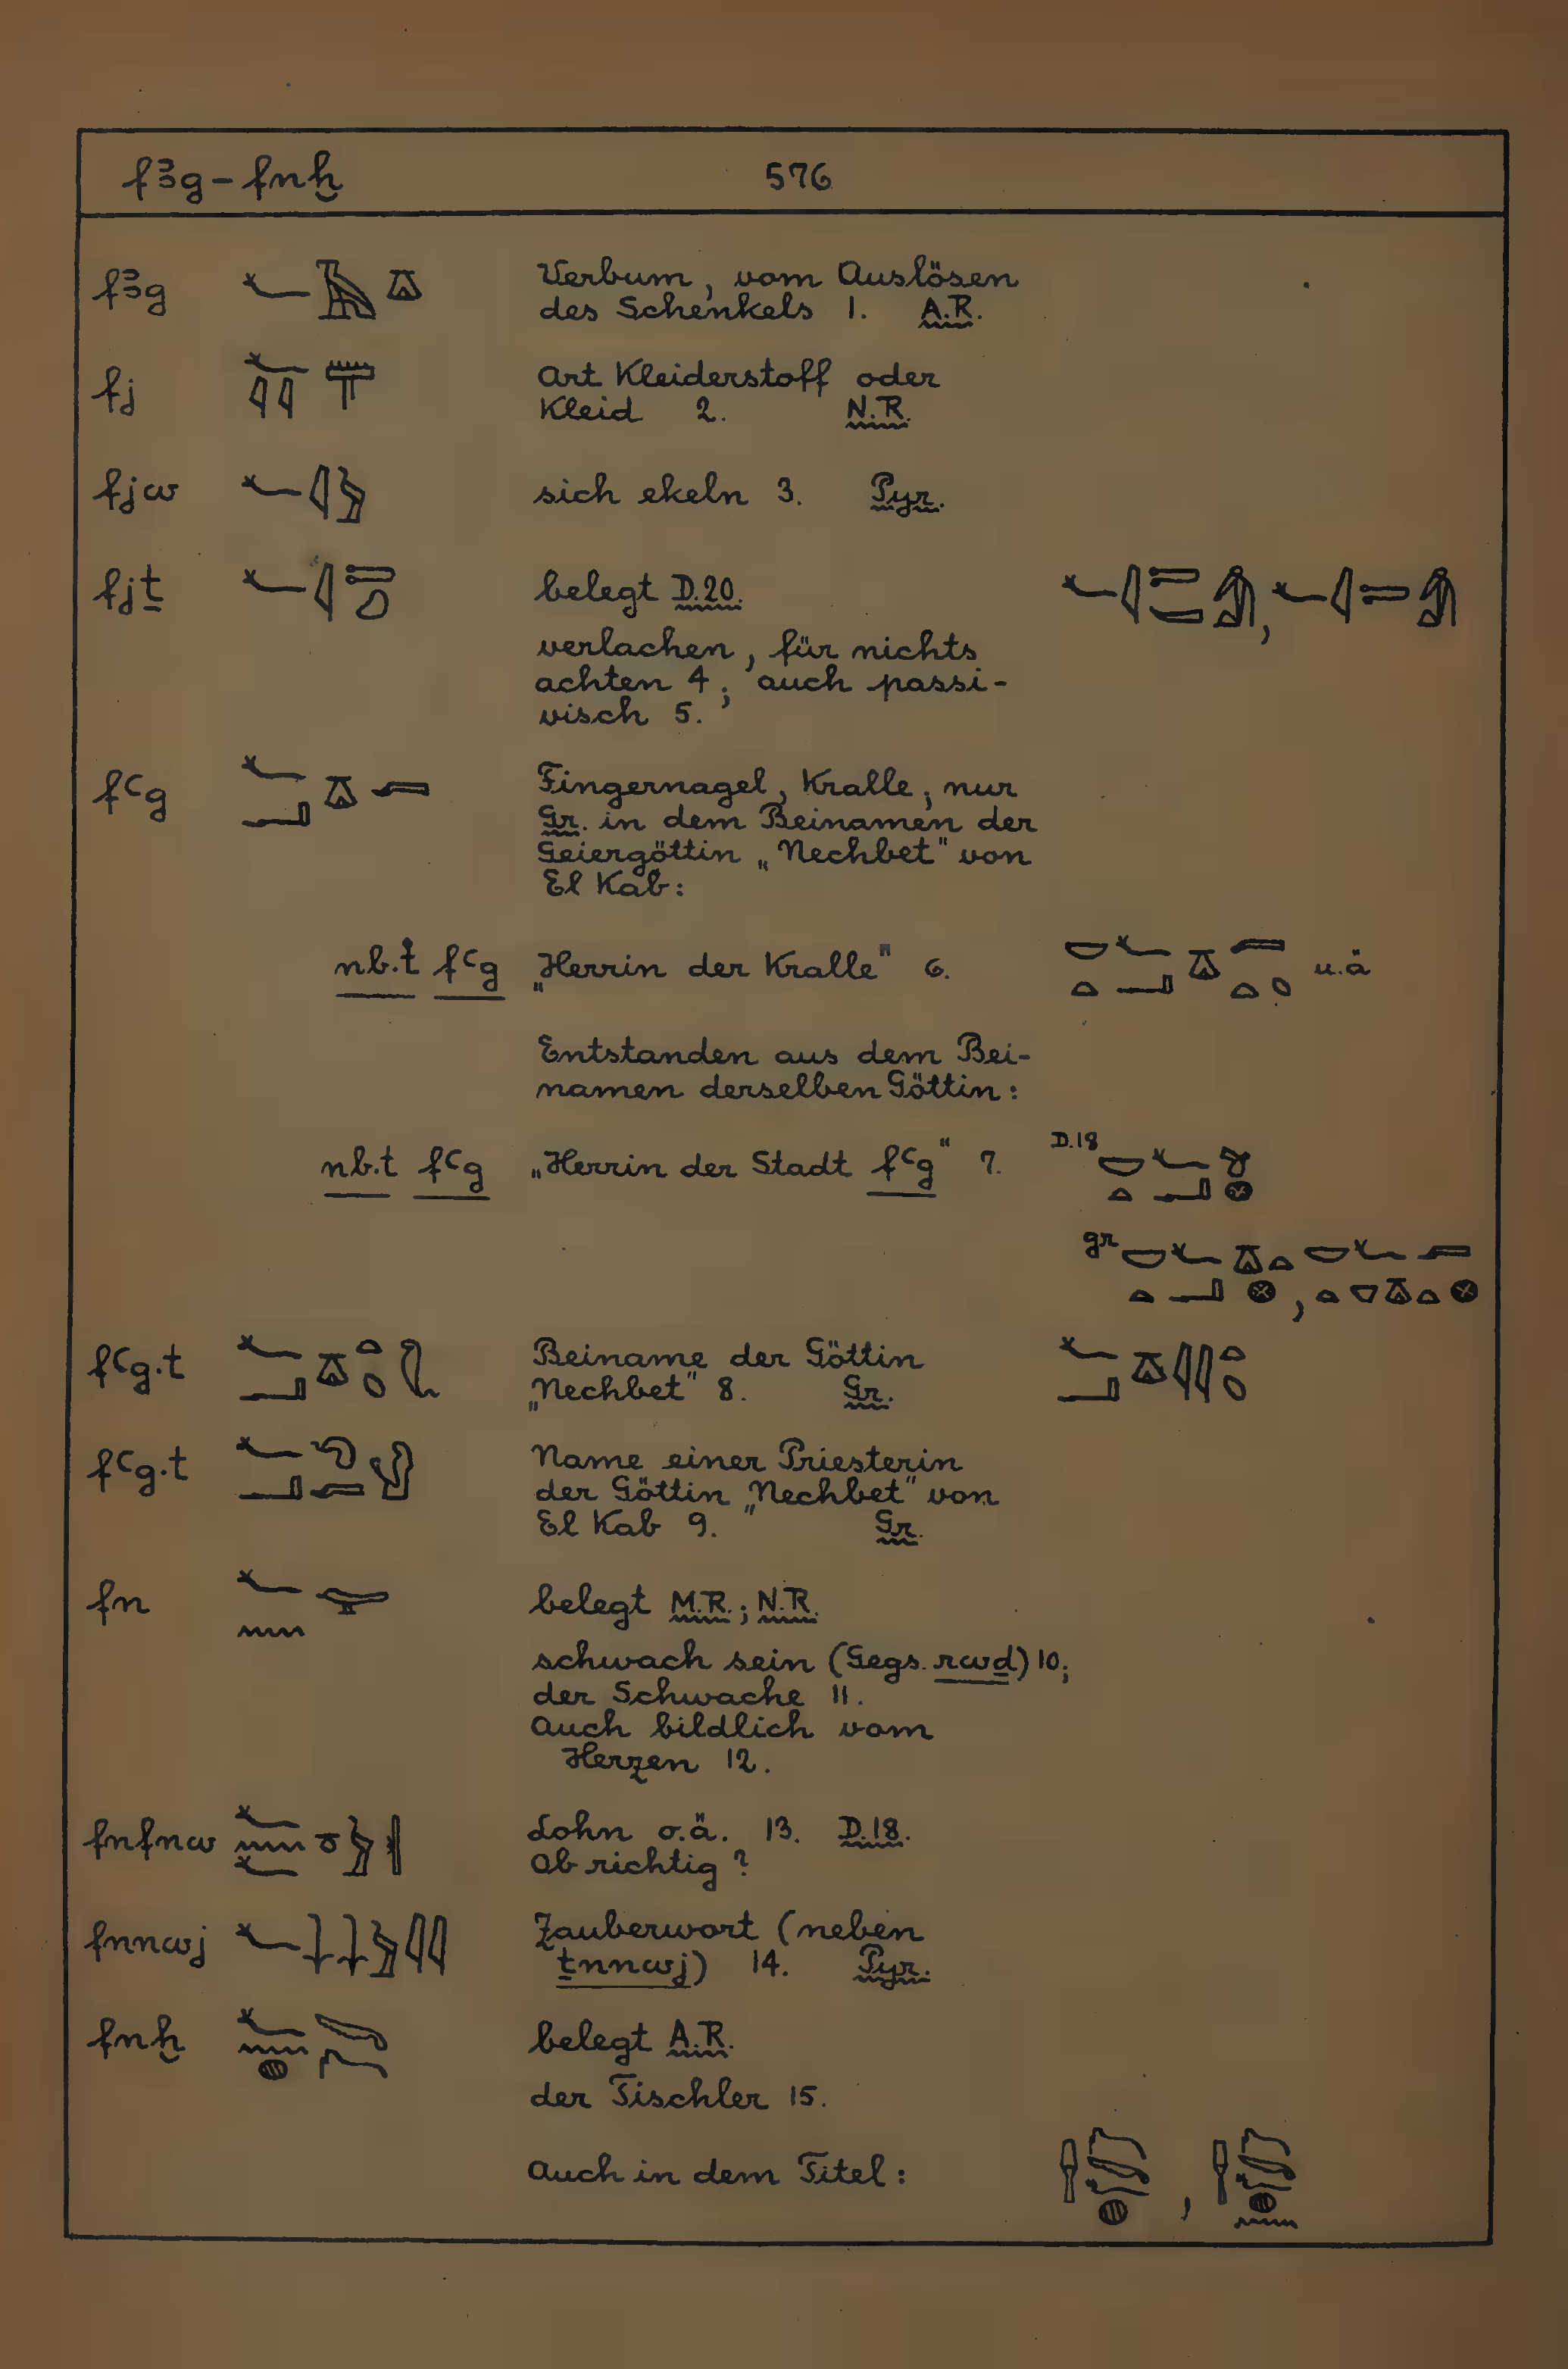 fꜣg – fnḫ 576
fꜣg 𓆑𓄿𓎼 Verbum, vom Auslösen
des Schenkels 1. A.R.
fj Art Kleiderstoff oder
Kleid 2. N.R.
fjw 𓆑𓇋𓅱 sich ekeln 3. Pyr.
fjṯ belegt D.20.
verlachen, für nichts
achten 4; auch passi-
visch 5.
fꜥg Fingernagel, Kralle; nur
Gr. in dem Beinamen der
Geiergöttin „Nechbet" von
El Kab:
nb.t fꜥg „Herrin der Kralle" 6. u.ä
Entstanden aus dem Bei-
namen derselben Göttin:
nb.t fꜥg „Herrin der Stadt fꜥg" 7. D.18
gr
fꜥg.t Beiname der Göttin
„Nechbet" 8. Gr.
fꜥg.t Name einer Priesterin
der Göttin „Nechbet" von
El Kab 9. Gr.
fn belegt M.R.; N.R.
schwach sein (Gegs. rwḏ) 10;
der Schwache 11.
Auch bildlich vom
Herzen 12.
fnfnw Lohn o.ä. 13. D.18.
Ob richtig?
fnnwj Zauberwort (neben
ṯnnwj) 14. Pyr.
fnḫ belegt A.R.
der Tischler 15.
Auch in dem Titel: